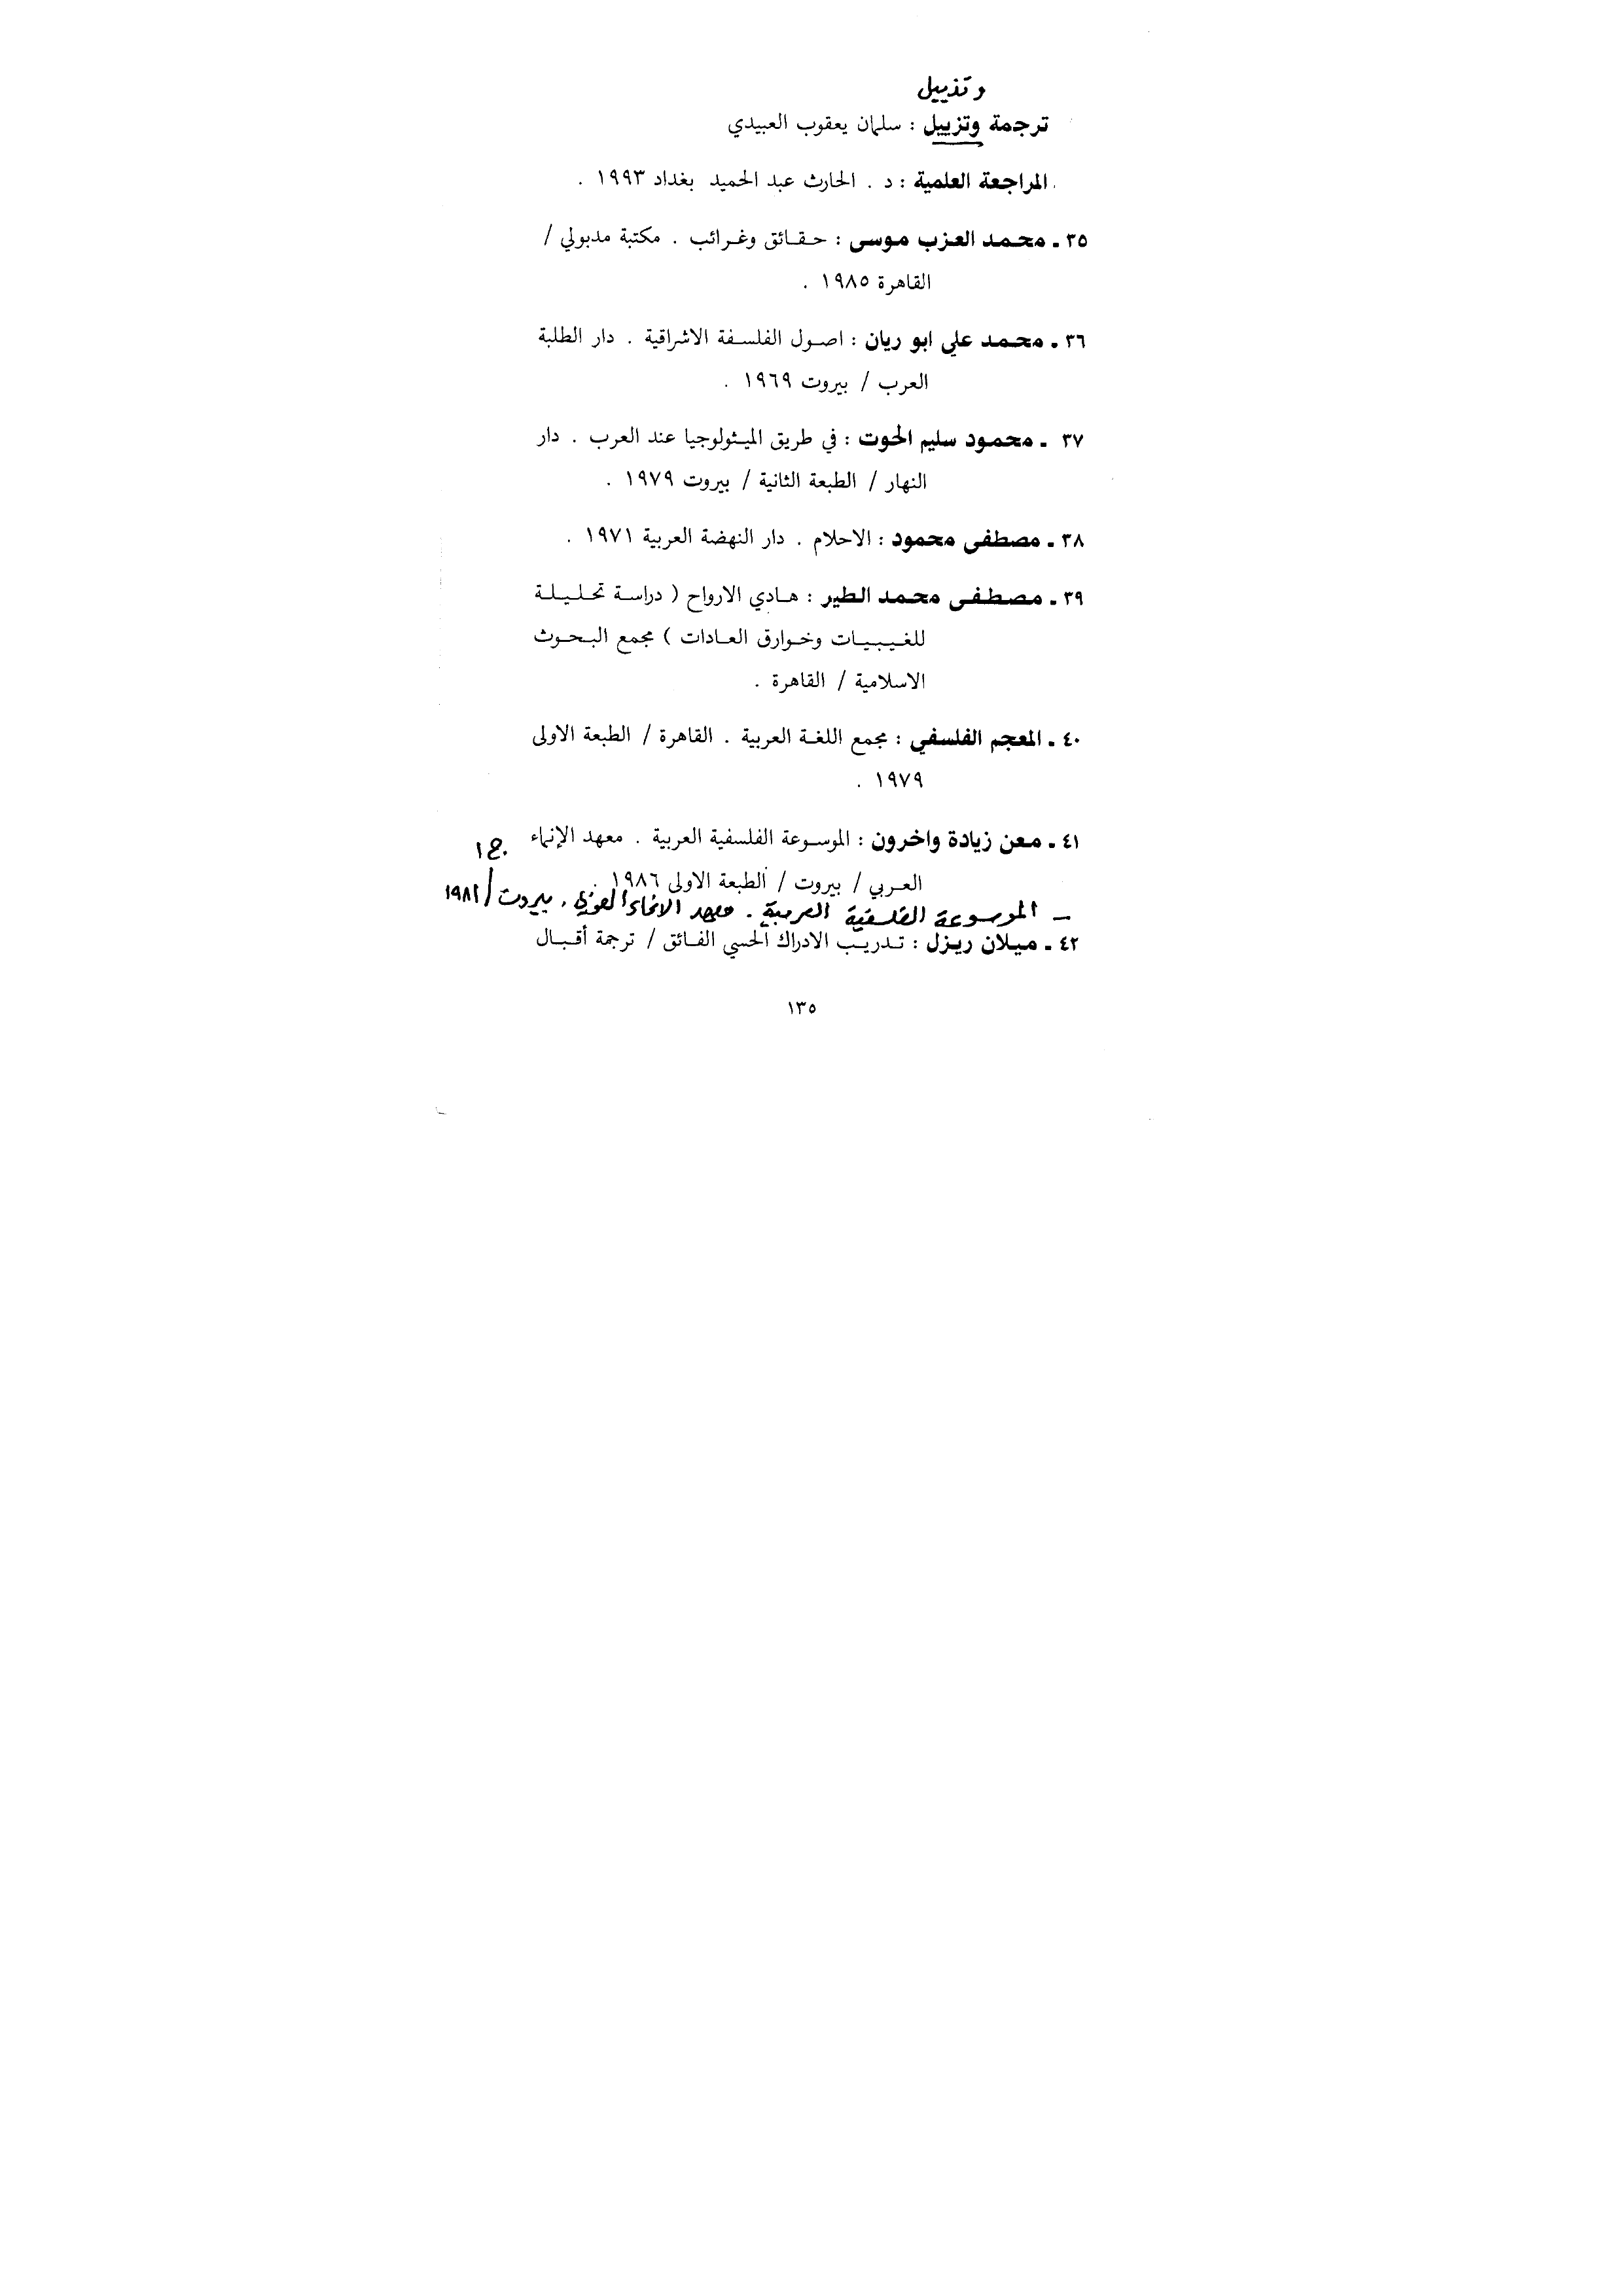 وتذييل
ترجمة وتزييل : سلمان يعقوب العبيدي
المراجعة العلمية : د . الحارث عبد الحميد بغداد ١٩٩٣ .
٣٥ ـ محمد العزب موسى : حقائق وغرائب . مكتبة مدبولي /
القاهرة ١٩٨٥ .
٣٦ ـ محمد علي ابو ريان : اصول الفلسفة الاشراقية . دار الطلبة
العرب / بيروت ١٩٦٩ .
٣٧ ـ محمود سليم الحوت : في طريق الميثولوجيا عند العرب . دار
النهار / الطبعة الثانية / بيروت ١٩٧٩ .
٣٨ ـ مصطفى محمود : الاحلام . دار النهضة العربية ١٩٧١ .
٣٩ ـ مصطفى محمد الطير : هادي الارواح ( دراسة تحليلة
للغيبيات وخوارق العادات ) مجمع البحوث
الاسلامية / القاهرة .
٤٠ ـ المعجم الفلسفي : مجمع اللغة العربية . القاهرة / الطبعة الاولى
١٩٧٩ .
٤١ ـ معن زيادة واخرون : الموسوعة الفلسفية العربية . معهد الإنماء
ج١
العربي / بيروت / الطبعة الاولى ١٩٨٦ .
ـ الموسوعة الفلسفية العربية . معهد الانماء العربي . بيروت /
٤٢ ـ ميلان ريزل : تدريب الادراك الحسي الفائق / ترجمة أقبال
١٣٥